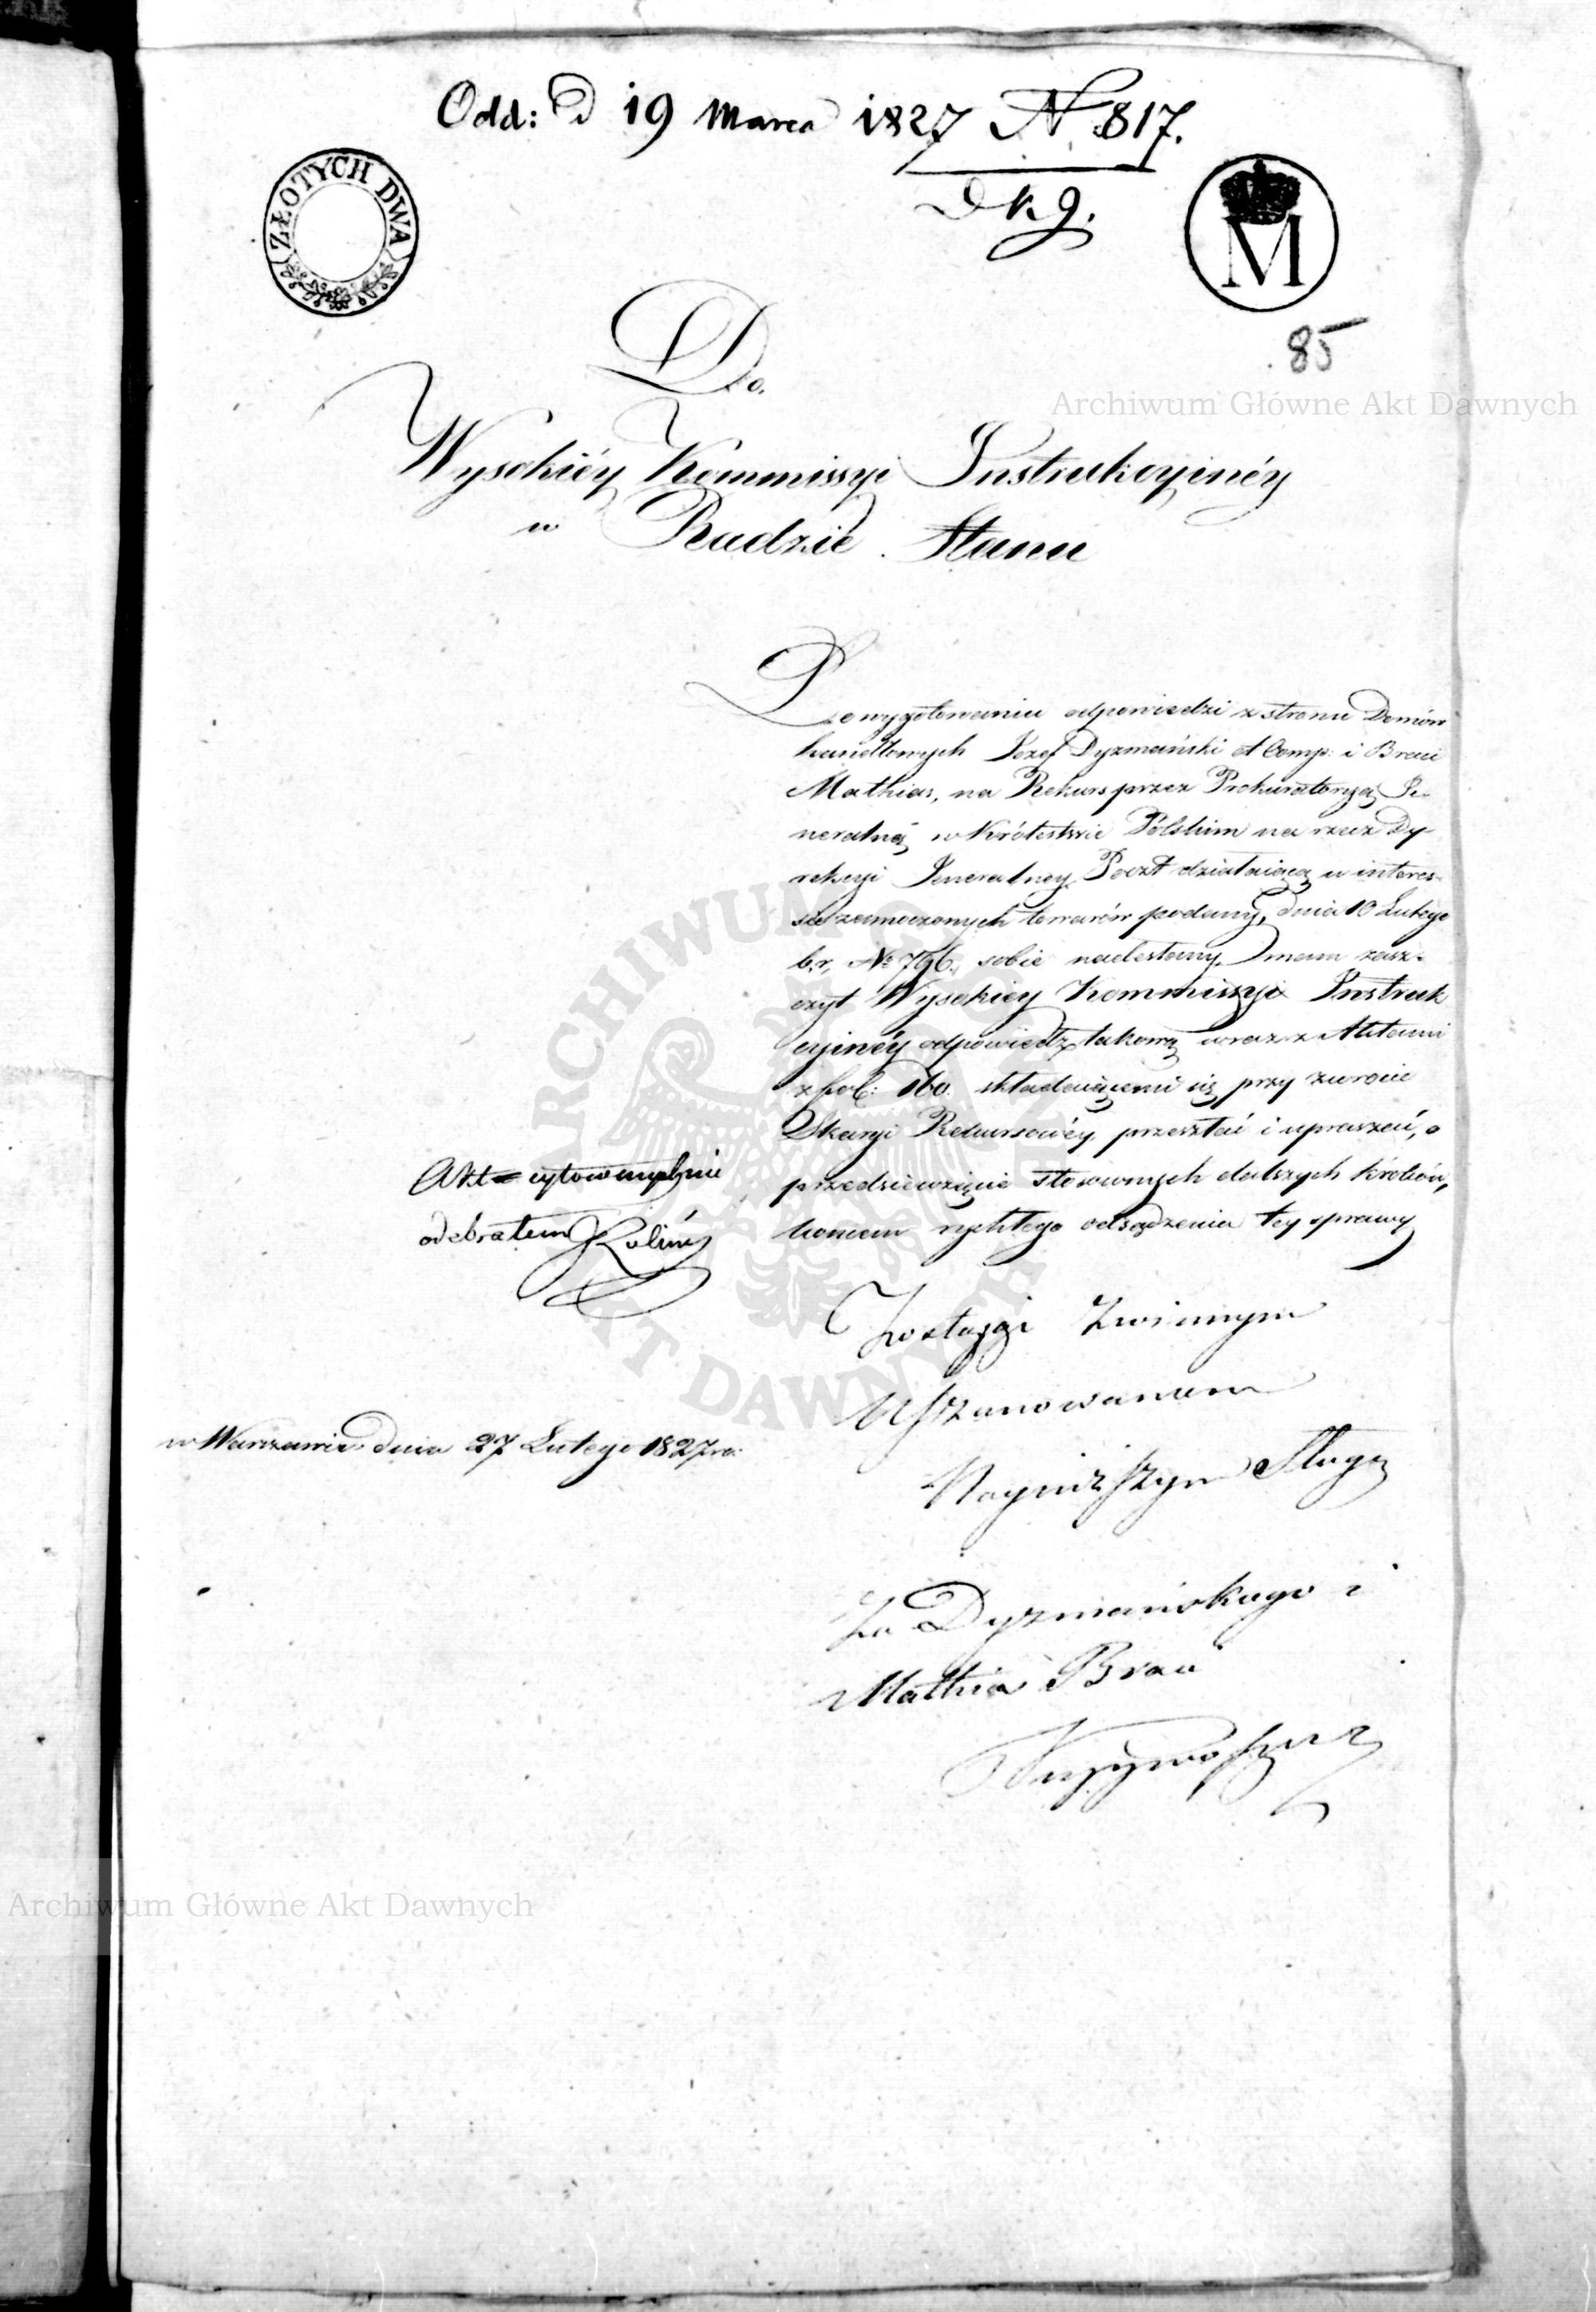 Odd: D 19 Marca 1827 N. 817.
D k g.
ZŁOTYCH DWA
M
85
Archiwum Główne Akt Dawnych
Do.
Wysokiéy Kommissyi Instrukcyinéy
w Radzie Stanu
Po wygotowaniu odpowiedzi z stronu Domów
handlowych Jozef Dyzmański et Comp: i Braci
Mathias, na Rekurs przez Prokuratoryą Je-
neralną w Królestwie Polskim na rzecz Dy-
rekcyi Jeneralney Poczt działaiącą w interes-
sie zamoczonych towarów podany, dnia 10 Lutego
b.r. No 796. sobie nadesłany, mam zasz-
czyt Wysokiey Kommissyi Instruk
cyinéy odpowiedz takową wraz z Aktami
z fol: 160. składaiącemi się przy zwrocie
Skargi Rekursowéy przesłać i upraszać, o
przedsiewzięcie stosownych dalszych kroków,
koncem rychłego odsądzenia tey sprawy
Akt cytowanych nie
odebrałem
Zostaję z winnym
Uszanowaniem
w Warszawie dnia 27 Lutego 1827 ro:
Nayniższym Sługą
Za Dyzmańskiego i
Mathias Braci
Archiwum Główne Akt Dawnych
ARCHIWUM GŁÓWNE AKT DAWNYCH